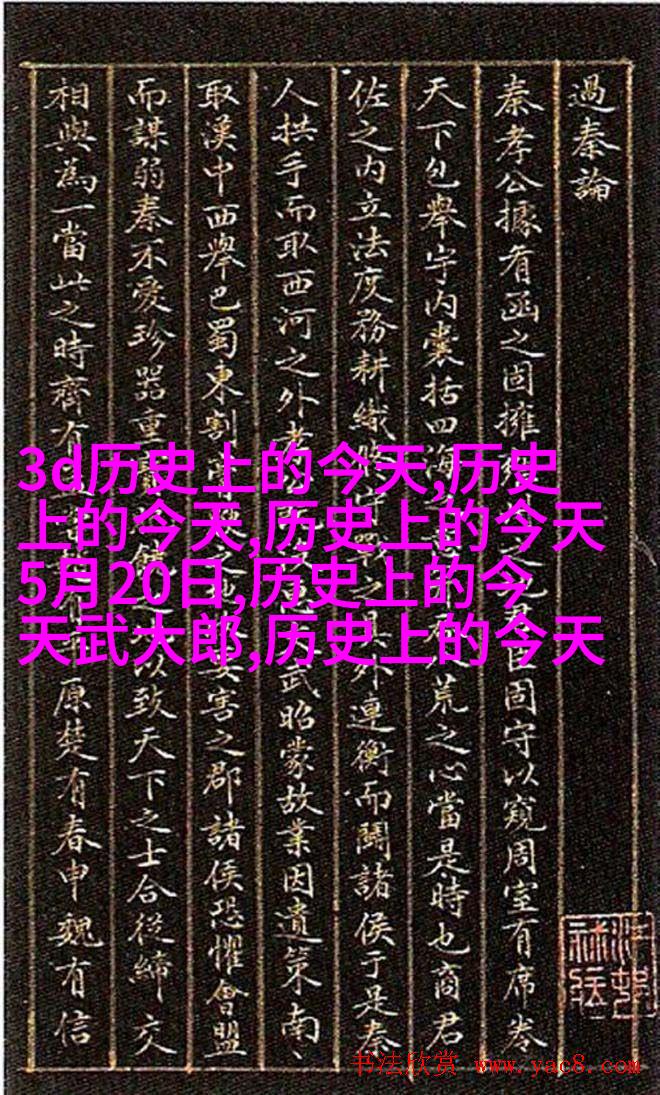 過秦論
秦孝公據有函之固擁固守以窺周室有席卷
天下包舉宇内囊括四海荒之心當是時也商君
佐之内立法度務耕織外連衡而鬭諸侯于是秦
人拱手而取西河之外武昭蒙故業因遺策南
取漢中西舉巴蜀東割害之郡諸侯恐懼會盟
而謀弱秦不愛珍器重以致天下之士合從締交
相與為一當此之時齊有原楚有春申魏有信
3d历史上的今天,历史
上的今天,历史上的今天
5月20日,历史上的今
天武大郎,历史上的今天
书法欣赏 www.yac8.com